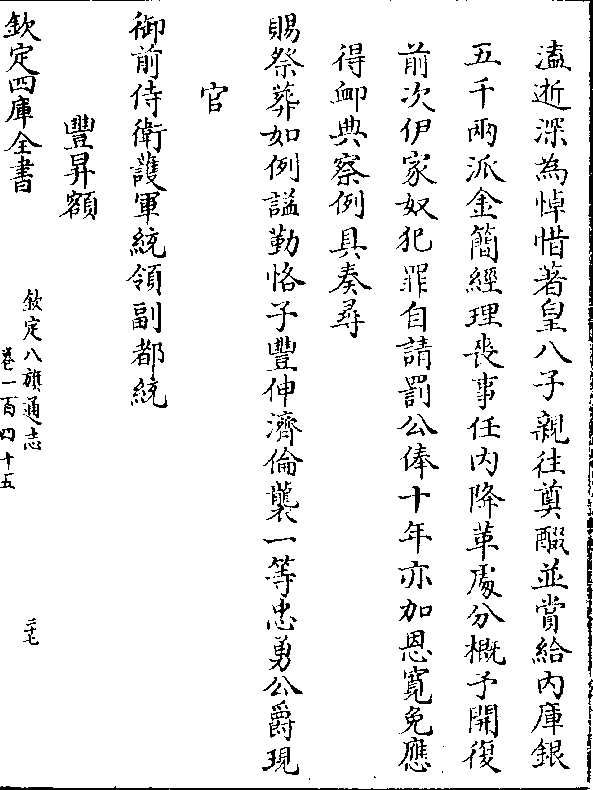 溘逝深為悼惜著皇八子親往奠醊並賞給內庫銀
五千兩派金簡經理喪事任內降革處分概予開復
前次伊家奴犯罪自請罰公俸十年亦加恩寬免應
得卹典察例具奏尋
賜祭葬如例諡勤恪子豐伸濟倫襲一等忠勇公爵現
官
御前侍衛護軍統領副都統
豐昇額
欽定四庫全書
欽定八旗通志
卷一百四十五
三七